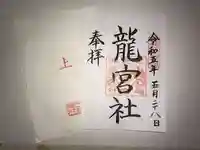 令和五年 五月二八日
龍宮社
奉拝
上